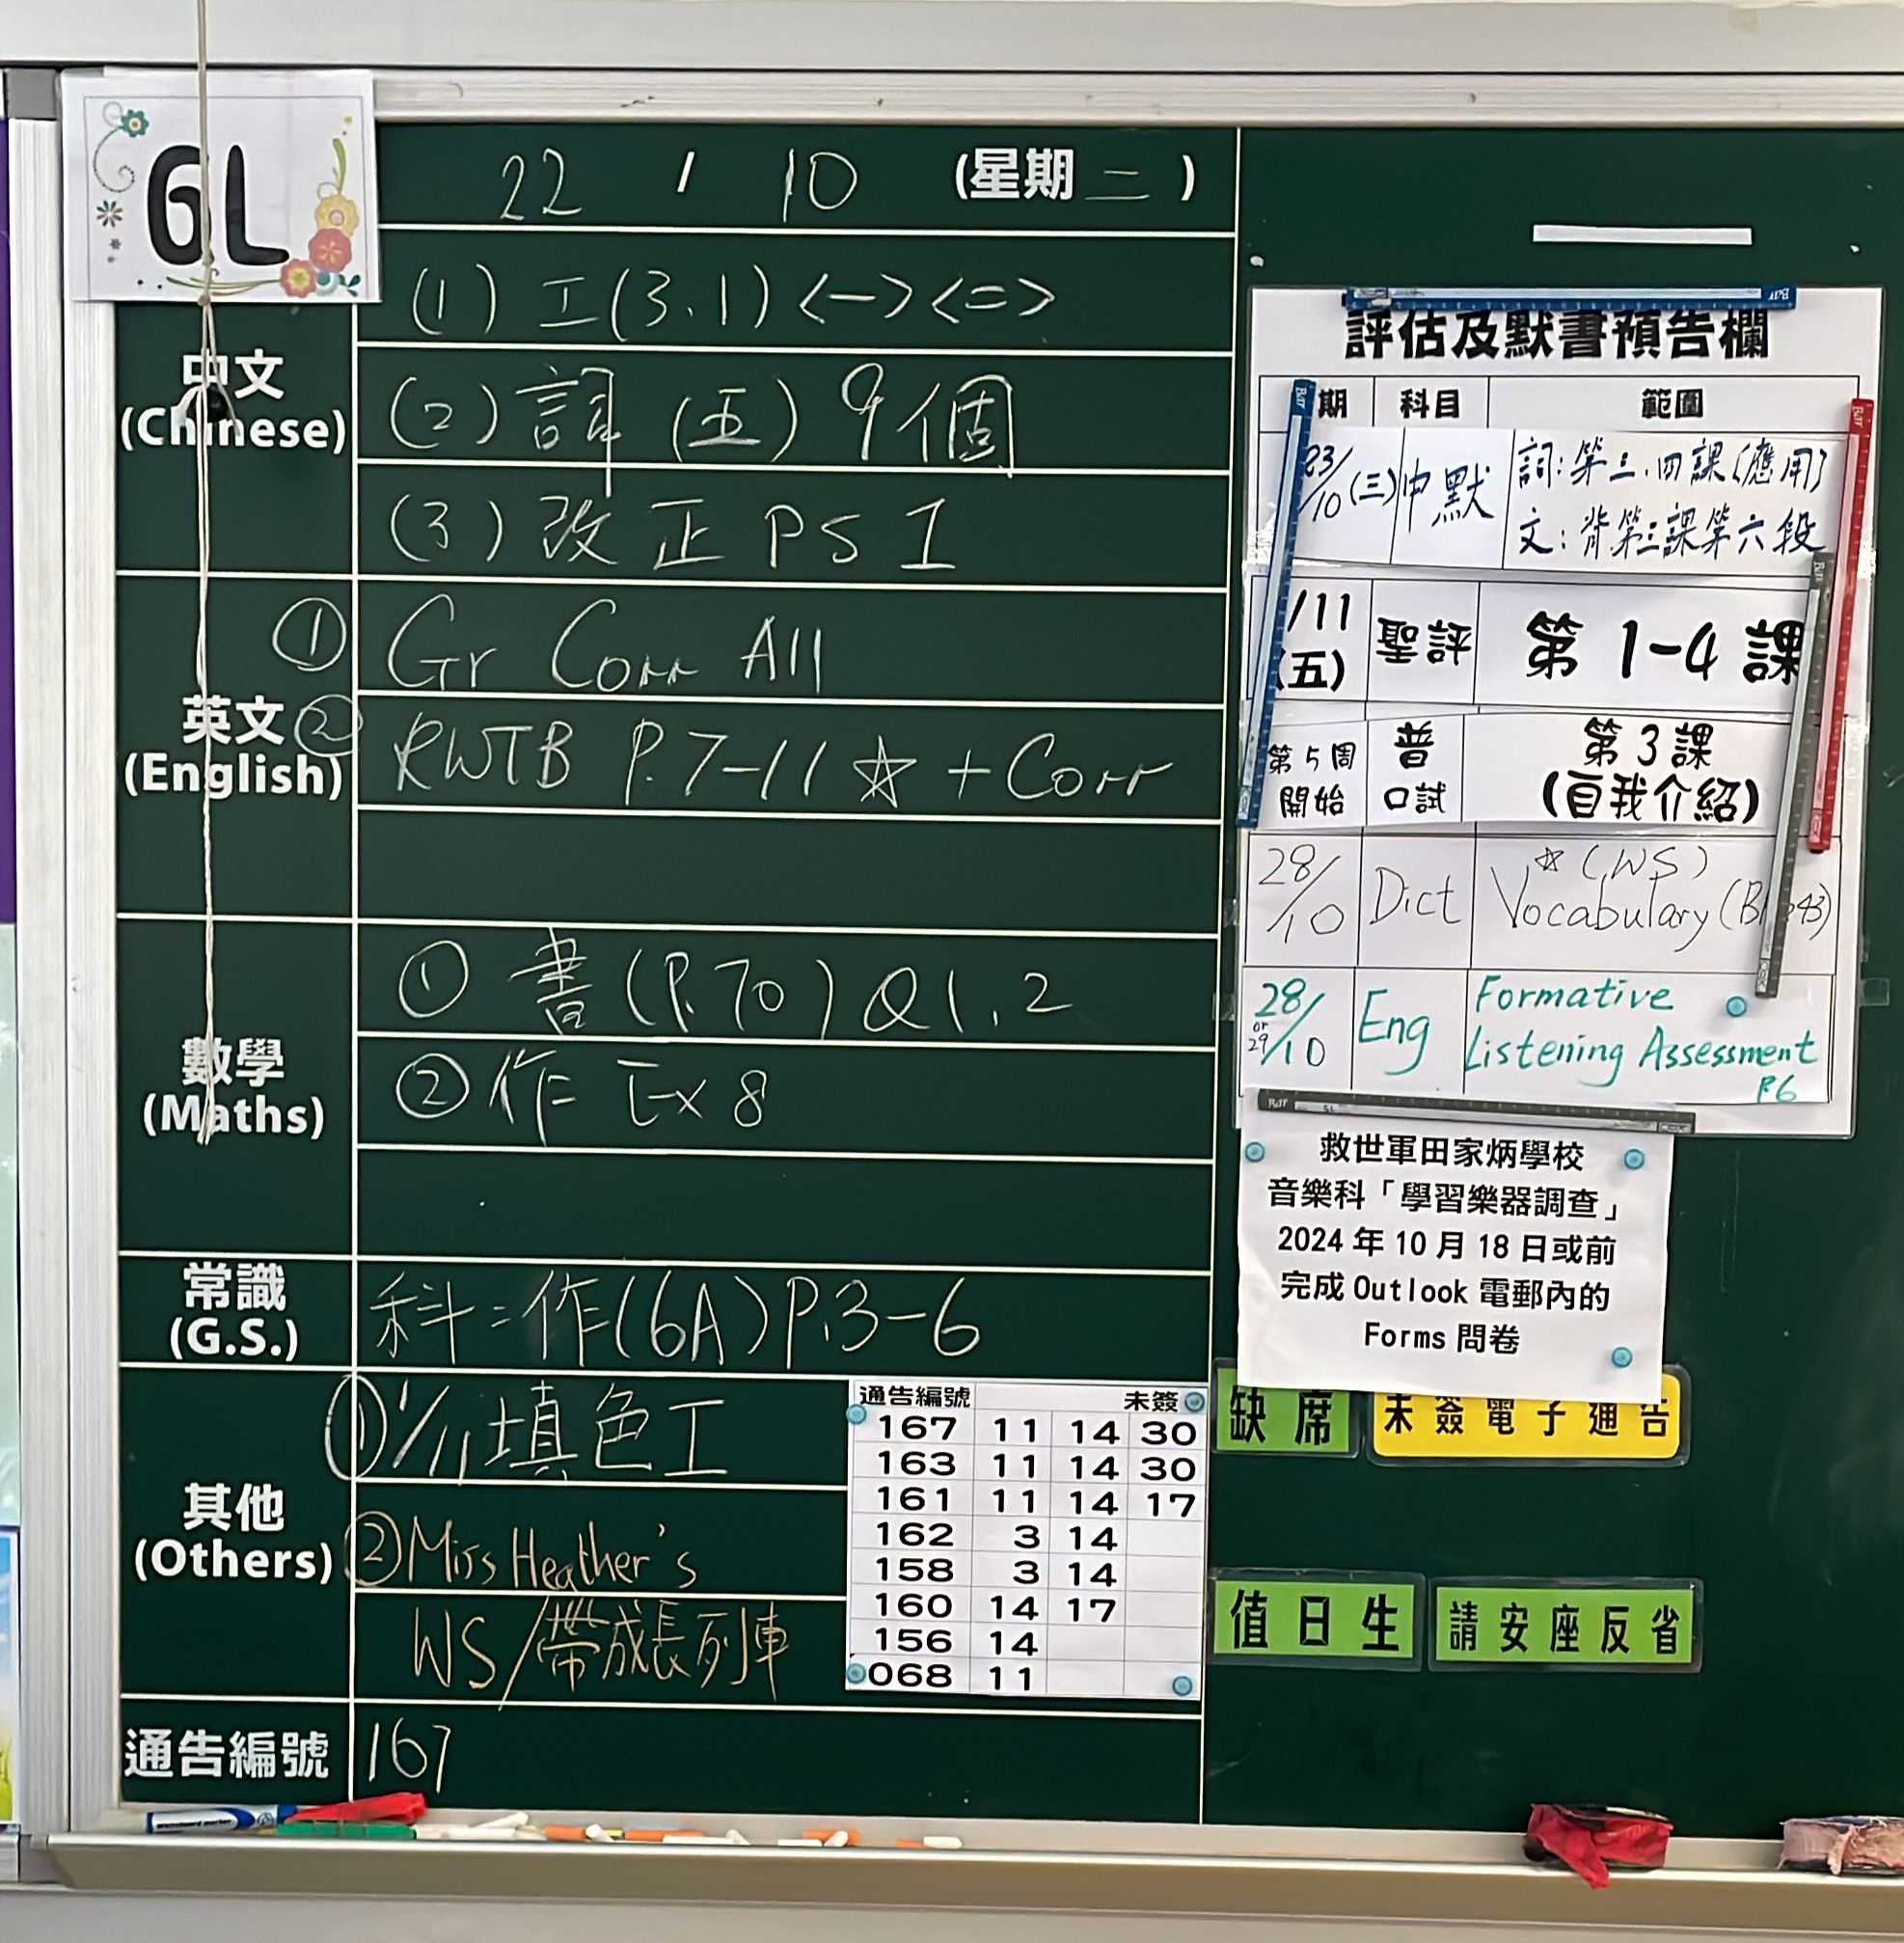 6L
22 / 10 (星期二)
中文
(Chinese)
(1) 工(3.1) <一> <二>
(2) 詞 (五) 9個
(3) 改正 PS 1
英文
(English)
① Gr Corr All
② RWTB P.7-11 ☆ + Corr
數學
(Maths)
① 書 (P.70) Q1, 2
② 作 Ex 8
常識
(G.S.)
科：作(6A) P.3-6
其他
(Others)
① 1/11 填色工
② Miss Heather's
WS/帶成長列車
通告編號
167
通告編號 未簽
167 11 14 30
163 11 14 30
161 11 14 17
162 3 14
158 3 14
160 14 17
156 14
068 11
評估及默書預告欄
期 科目 範圍
23/10 (三) 中默 詞：第三、四課(應用)
文：背第三課第六段
/11 (五) 聖評 第 1-4 課
第5周開始 普口試 第3課
(自我介紹)
28/10 Dict ☆ (WS)
Vocabulary
28/10 or 29 Eng Formative
Listening Assessment
P.6
救世軍田家炳學校
音樂科「學習樂器調查」
2024 年 10 月 18 日或前
完成 Outlook 電郵內的
Forms 問卷
缺席
未簽電子通告
值日生
請安座反省